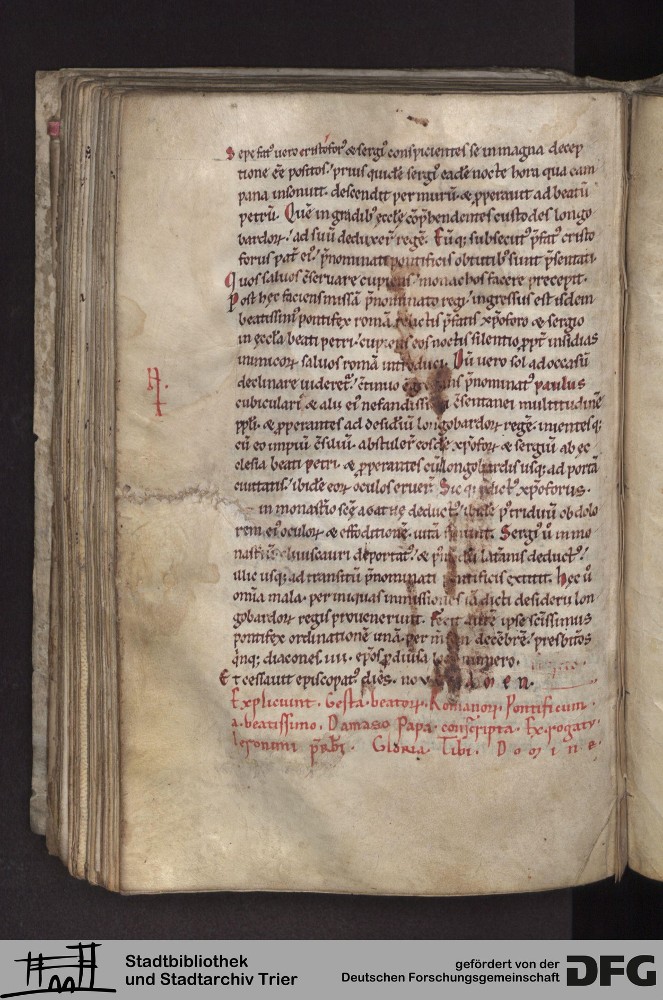 Sepe fat' uero cristofor' & sergi' conspicientes se in magna decep
tione ēē positos. prius quidē sergi' eadē nocte hora qua cam
pana insonuit. descendit per murū. & pperauit ad beatū
petrū. Quē in gradib' eccłę cōphendentes custodes longo
bardoꝝ. ad suū deduxer̄ regē. Eūq; subsecut' p̄fat' cristo
forus pat̄ ei'. p̄nominati pontificis obtutib' sunt p̄sentati.
Quos saluos c̄seruare cupiens. monachos facere precepit.
Post hęc faciens missā p̄nominato regi. ingressus est isdem
beatissim' pontifex romā relictis p̄fatis xp̄oforo & sergio
in ecclā beati petri. cupiens eos noctis silentio ppt̄ insidias
inimicoꝝ saluos romā introduci. Dū uero sol ad occasū
declinare uideret᷒. c̄tinuo paulus
cubiculari' & alii ei' nefandissimi c̄sentanei multitudinē
ppli. & pperantes ad desidiū longobardoꝝ regē. inientesq;
cū eo impiū c̄siliū. abstuler̄ eosdē xp̄oforū & sergiū ab ęc
clesia beati petri. & pperantes cū longobardis usq; ad portā
ciuitatis. ibidē eoꝝ oculos eruer̄. Sicq; p̄dict' xp̄oforus.
in monast̄io scę agathę deduct'. ibidē p' triduū ob dolo
rem ei' oculoꝝ & effoditionē. uitā finiuit. Sergi' ū in mo
nast̄iū cliuiscauri deportat'. & p' in lat̄anis deduct'.
illic usq; ad transitū p̄nominati pontificis extitit. Hęc ū
om̄ia mala. per iniquas inmissiones iā dicti desiderii lon
gobardoꝝ regis prouenerunt. Fecit autē ipse sc̄issimus
pontifex ordinationē unā. per m̄sem decēbrē. presbit̄os
q̄nq; diacones. iiii. ep̄os p diuisa loca numero.
Et cessauit episcopat' dies. nouē. Amen.
Expliciunt. Gesta. beatoꝝ. Romanoꝝ. Pontificum.
a. beatissimo. Damaso Papa. conscripta. Ex. rogatu.
Ieronimi p̄rbi. Gloria. Tibi. Domine.
A.
Stadtbibliothek
und Stadtarchiv Trier
gefördert von der
Deutschen Forschungsgemeinschaft
DFG